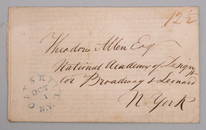 12½
Theodore Allen Esq
National Academy of Design
Cor Broadway & Leonard
N. York
OCT
1
N.Y.